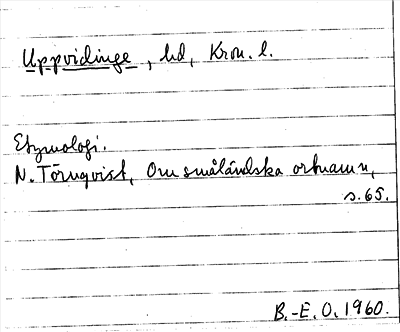 Uppvidinge, hd, Kron. l.
Etymologi.
N. Törnqvist, Om småländska ortnamn,
s. 65.
B.-E. O. 1960.